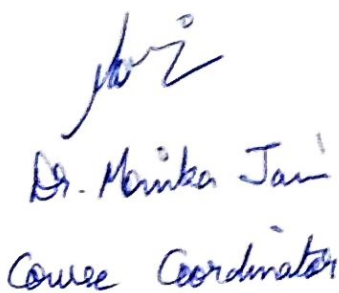 Dr. Monika Jain
Course Coordinator